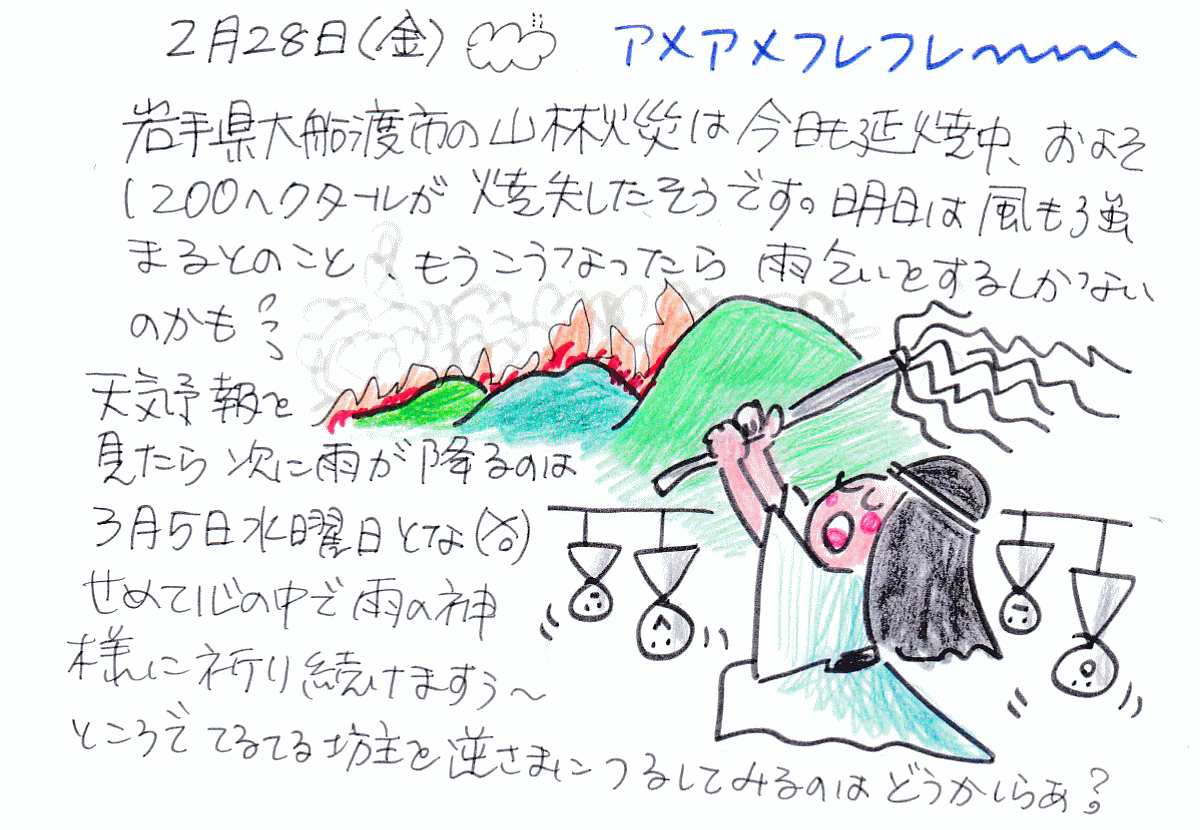 2月28日(金)
アメアメフレフレ〜〜〜
岩手県大船渡市の山林火災は今日も延焼中、およそ
1200ヘクタールが焼失したそうです。明日は風も強
まるとのこと、もうこうなったら雨乞いをするしかない
のかも?
天気予報を
見たら次に雨が降るのは
3月5日水曜日とな
せめて心の中で雨の神
様に祈り続けますぅ〜
ところでてるてる坊主を逆さまにつるしてみるのはどうかしらぁ?